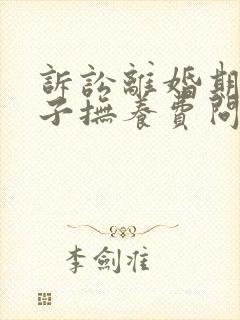 訴訟離婚期
子撫養費問
李劍淮